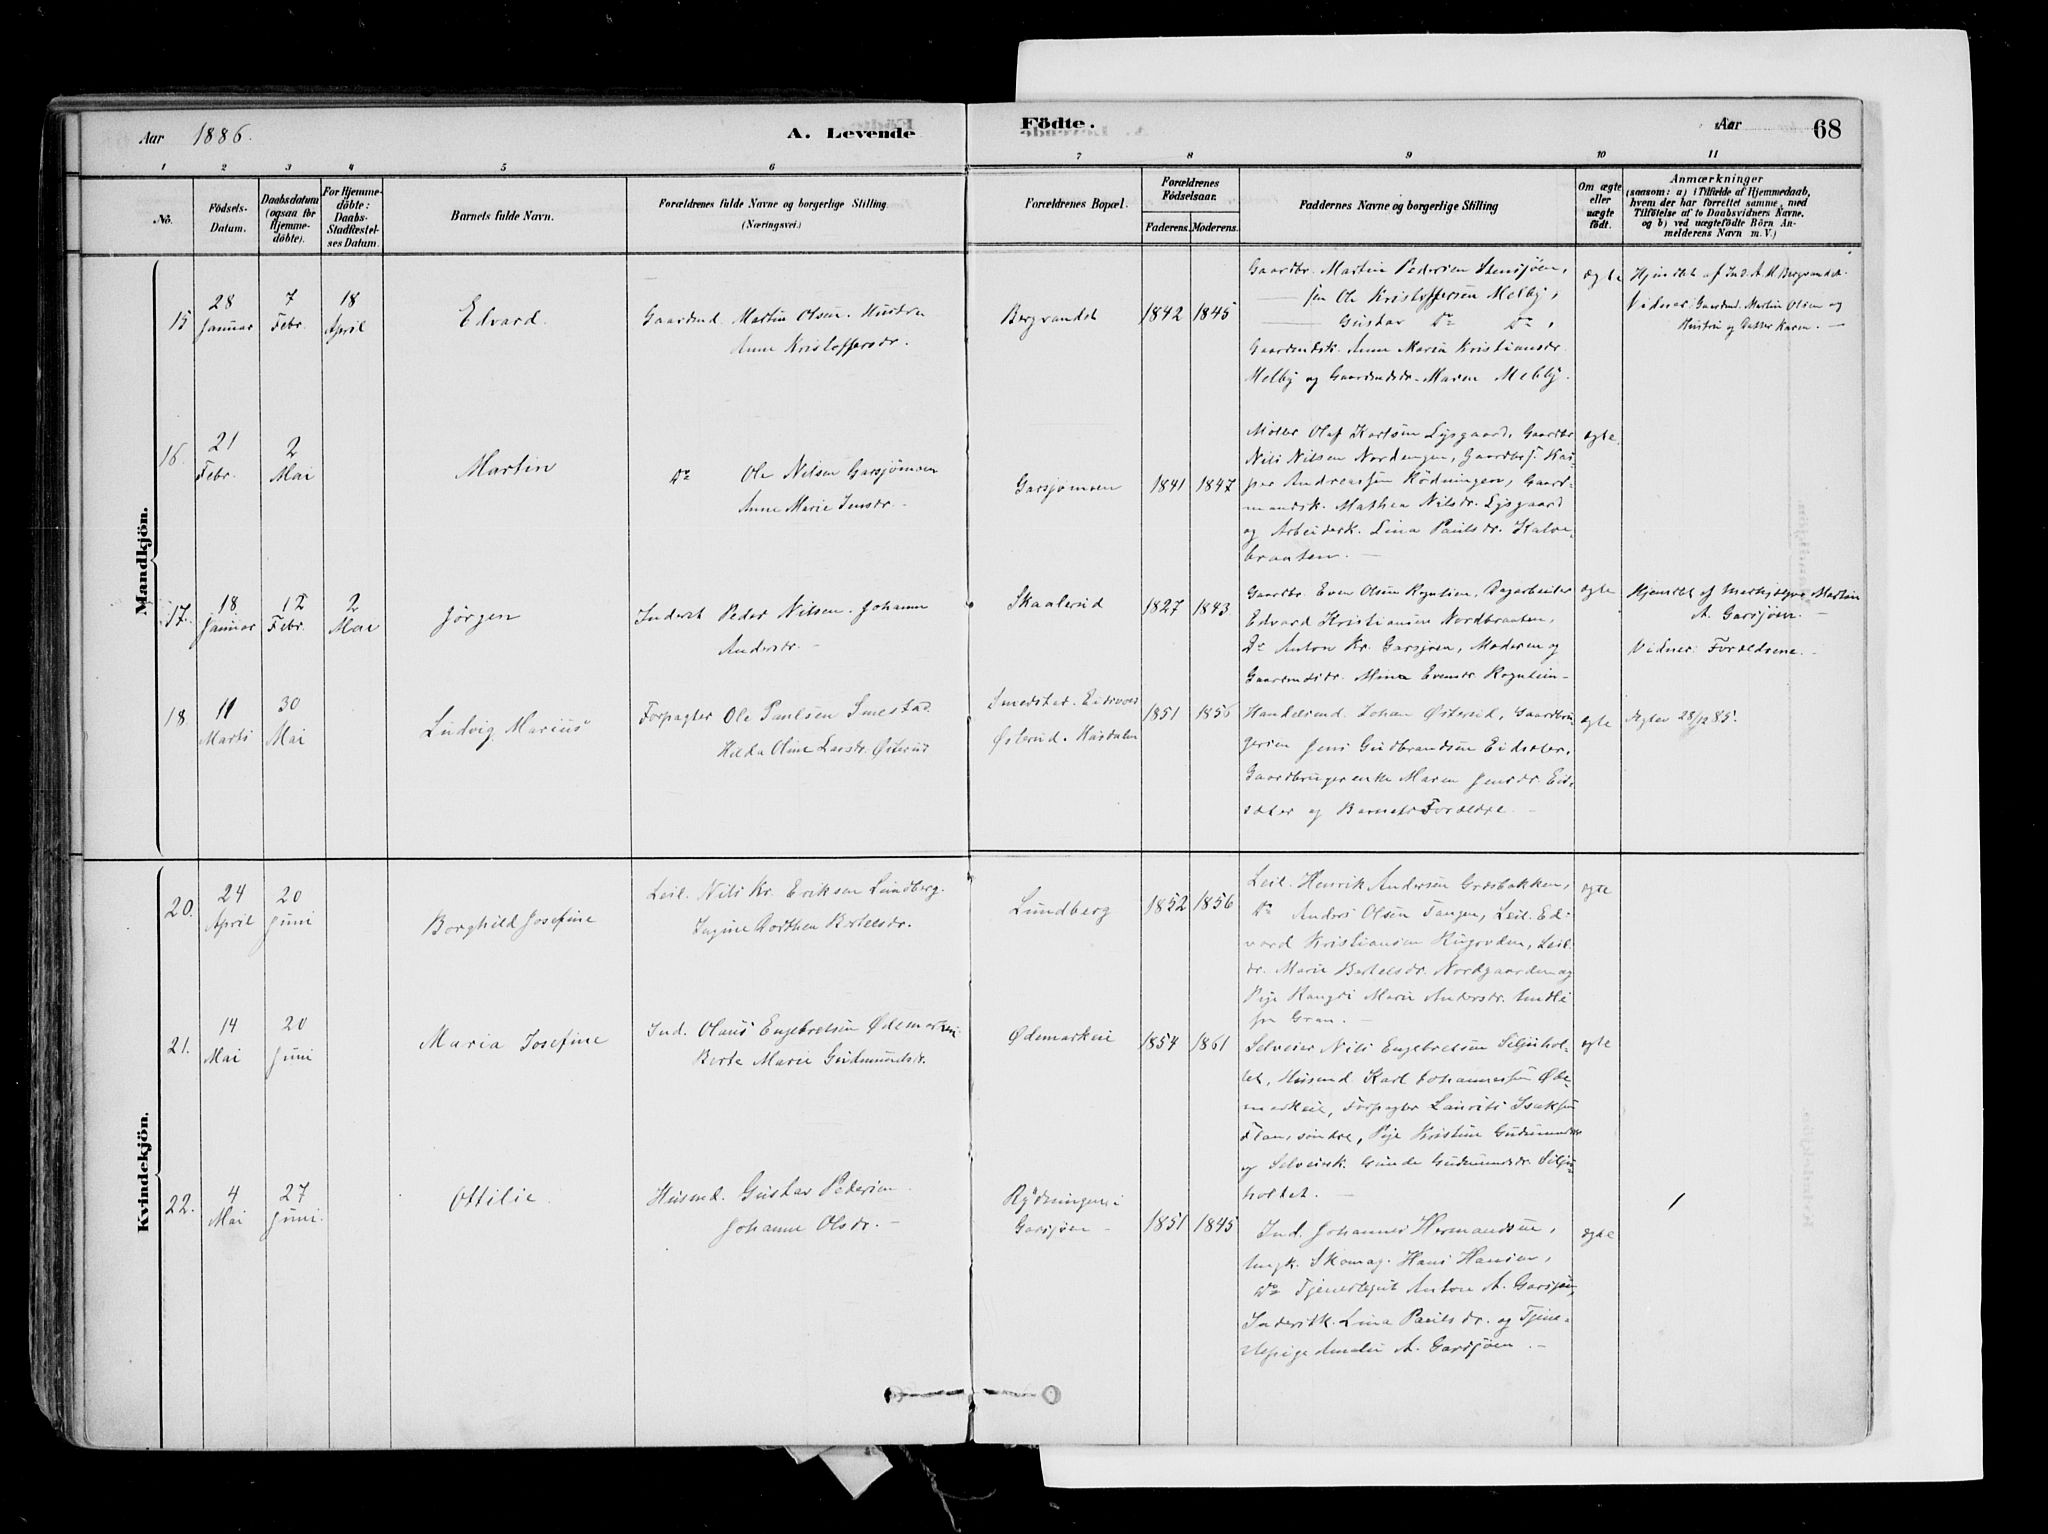 Aar 1886.
A. Levende
Födte.
Aar
68
1 2 3 4 5 6 7 8 9 10 11
No.
Födsels-
Datum.
Daabsdatum
(ogsaa for
Hjemme-
döbte).
For Hjemme-
döbte:
Daabs-
Stadfæstel-
ses Datum.
Barnets fulde Navn.
Forældrenes fulde Navne og borgerlige Stilling
(Næringsvei.)
Forældrenes Bopæl.
Forældrenes
Födselsaar.
Faderens. Moderens.
Faddernes Navne og borgerlige Stilling
Om ægte
eller
uægte
födt.
Anmærkninger
(saasom: a) i Tilfælde af Hjemmedaab,
hvem der har forrettet samme, med
Tilföielse af to Daabsvidners Navne.
og b) ved uægtefödte Börn An-
melderens Navn m. V.)
Mandkjön.
15
28
Januar
7
Febr.
18
April
Edvard.
Gaardmd. Martin Olsen. Hustru
Anne Kristoffersdr.
Bergvandet
1842 1845
Gaardbr. Martin Pedersen Stensjøen,
Ole Kristoffersen Melby,
Gustav Do Do,
Gaardmdsk. Anne Maria Kristiansdr.
Melby og Gaardmdsdr. Maren Melby.
ægte
Hjmdbt af Ind. A M Bergvandet.
Vidner: Gaardmd. Martin Olsen og
Hustru og Datter Karen. —
16.
21
Febr.
2
Mai
Martin
Do Ole Nilsen Garsjømoen
Anne Marie Jensdr.
Garsjømoen
1841 1847
Møller Olaf Karlsen Lysgaard, Gaardbr
Nils Nilsen Nordengen, Gaardbrs. Kas-
per Andreassen Rödningen, Gaard-
mandsk. Mathea Nilsdr. Lysgaard
og Arbeiderk. Lina Paulsdr. Kalve-
braaten. —
ægte
17.
18
Januar
12
Febr.
2
Mai
Jørgen
Inderst Peder Nilsen. Johanne
Andersdr. —
Skaalerud
1827 1843
Gaardbr. Even Olsen Rognlien, Dagarbeider
Edvard Kristiansen Nordbraaten,
Do Anton Kr. Garsjøen, Moderen og
Gaardmdsdr. Mina Evensdr Rognlien-
ægte
A. Garsjøen. —
Vidner: Forældrene. —
18
11
Marts
30
Mai
Ludvig Marius
Forpagter Ole Paulsen Smestad.
Hilda Oline Larsdr. Østerud
Smedstad. Eidsvold
Østerud. Hurdalen
1851 1856
Handelsmd. Johan Østerud, Gaardbru-
gersøn Jens Gudbrandsen Eidsæter,
Gaardbrugerenke Maren Jensdr. Eid-
sæter og Barnets Forældre. —
ægte
Ægtev 28/12 85.
Kvindekjön.
20.
24
April
20
Juni
Borghild Josefine
Leil. Nils Kr. Eriksen Lundberg.
Ingine Dorthea Bertelsdr.
Lundberg
1852 1856
Leil. Henrik Andersen Græsbakken,
Do Anders Olsen Tangen, Leil. Ed-
vard Kristiansen Hugorden, Leil.
dr. Marie Bertelsdr. Nordgaarden og
Pige Marie Andersdr.
fra Gran. —
ægte
21.
14
Mai
20
Juni
Maria Josefine
Ind. Olaus Engebretsen Ødemarken.
Berte Marie Gudmundsdr.
Ødemarkeie
1854 1861
Selveier Nils Engebretsen Seljehol-
tet, Husmd. Karl Johannessen Øde-
markeie, Forpagter Laurits Isaksen
Flan, søndre, Pige Kristine Gudmundsdr
og Selveierk. Gunda Gudmundsdr. Selje-
holtet. —
ægte
22.
4
Mai
27
Juni.
Ottilie
Husmd. Gustav Pedersen
Johanne Olsdr. —
Rydningen i
Garsjøen —
1851 1845
Ind. Johannes Hermandsen,
Ungk. Skomag. Hans Hansen,
Do Tjenestegut Anton A. Garsjøen,
Inderstk. Lina Paulsdr. og Tjene-
stepige Amalie A. Garsjøen. —
ægte